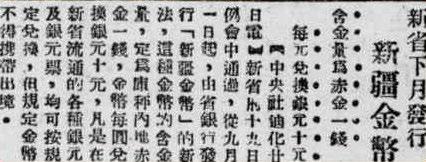 新省下月發行
新疆金幣
含金量爲赤金一錢
每元兌換銀元十元
【中央社迪化廿
日電】新省府十九日
例會中通過，從九月
一日起，由省銀行發
行「新疆金幣」的新
法，這種金幣的含金
量，定爲庫秤內地赤
金一錢，金幣每圓兌
換銀元十元，凡是在
新省流通的各種銀元
及銀元票，均可按規
定兌換，但規定金幣
不得攜帶出境。